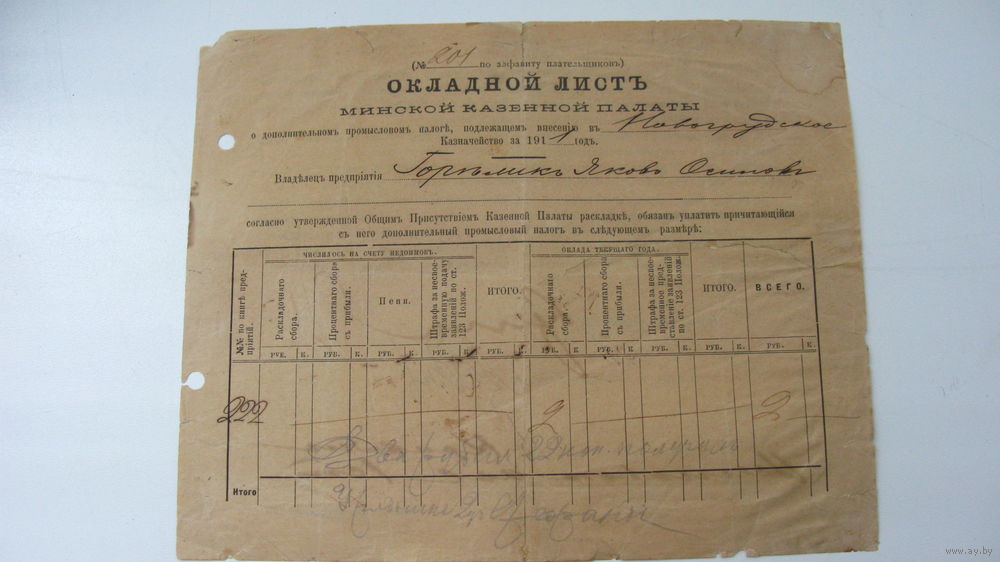 (№ 201 по алфавиту плательщиковъ)
ОКЛАДНОЙ ЛИСТЪ
МИНСКОЙ КАЗЕННОЙ ПАЛАТЫ
о дополнительномъ промысловомъ налогѣ, подлежащемъ внесенію въ Новогрудское
Казначейство за 1911 годъ.
Владѣлецъ предпріятія Горѣликъ Яковъ Осиповъ
согласно утвержденной Общимъ Присутствіемъ Казенной Палаты раскладкѣ, обязанъ уплатить причитающійся
съ него дополнительный промысловый налогъ въ слѣдующемъ размѣрѣ:
№№ по книгѣ предпріятій.
ЧИСЛИЛОСЬ НА СЧЕТУ НЕДОИМОКЪ.
Раскладочнаго сбора.
Процентнаго сбора съ прибыли.
Пеня.
Штрафа за несвоевременную подачу заявленій по ст. 123 Полож.
ИТОГО.
ОКЛАДА ТЕКУЩАГО ГОДА.
Раскладочнаго сбора.
Процентнаго сбора съ прибыли.
Штрафа за несвоевременное предъявленіе заявленій по ст. 123 Полож.
ИТОГО.
ВСЕГО.
РУБ. К. РУБ. К. РУБ. К. РУБ. К. РУБ. К. РУБ. К. РУБ. К. РУБ. К. РУБ. К. РУБ. К.
222 2 2
Два рубля 22 коп. получилъ
Итого
www.ay.by